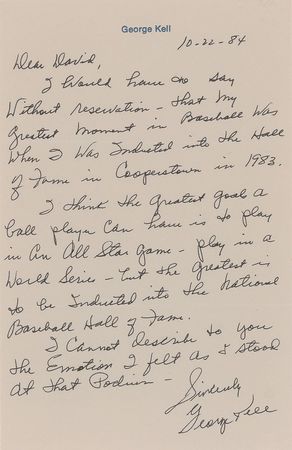 George Kell
10-22-84
Dear David,
I Would have to say
Without reservation - that my
greatest moment in Baseball Was
When I Was Inducted into the Hall
of Fame in Cooperstown in 1983.
I think the greatest goals a
ball player can have is to play
in An All Star Game - play in a
World Series - but the greatest is
to be Inducted into the National
Baseball Hall of Fame.
I Cannot describe to you
the Emotion I felt as I stood
at that Podium -
Sincerely
George Kell